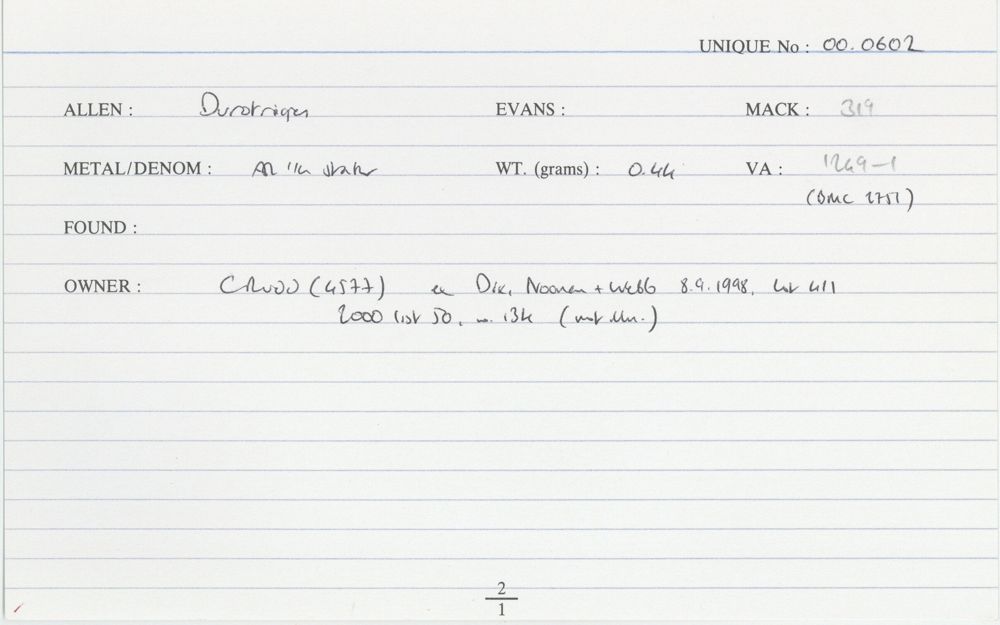 UNIQUE No : 00.0602
ALLEN : Durotriges EVANS : MACK : 319
METAL/DENOM : AR 1/4 stater WT. (grams) : 0.44 VA : 1249-1
(BMC 2751)
FOUND :
OWNER : (4577) ex Dix, Noonan + Webb 8.9.1998, lot 411
2000 list 50, no. 134 (not illus.)
2
1